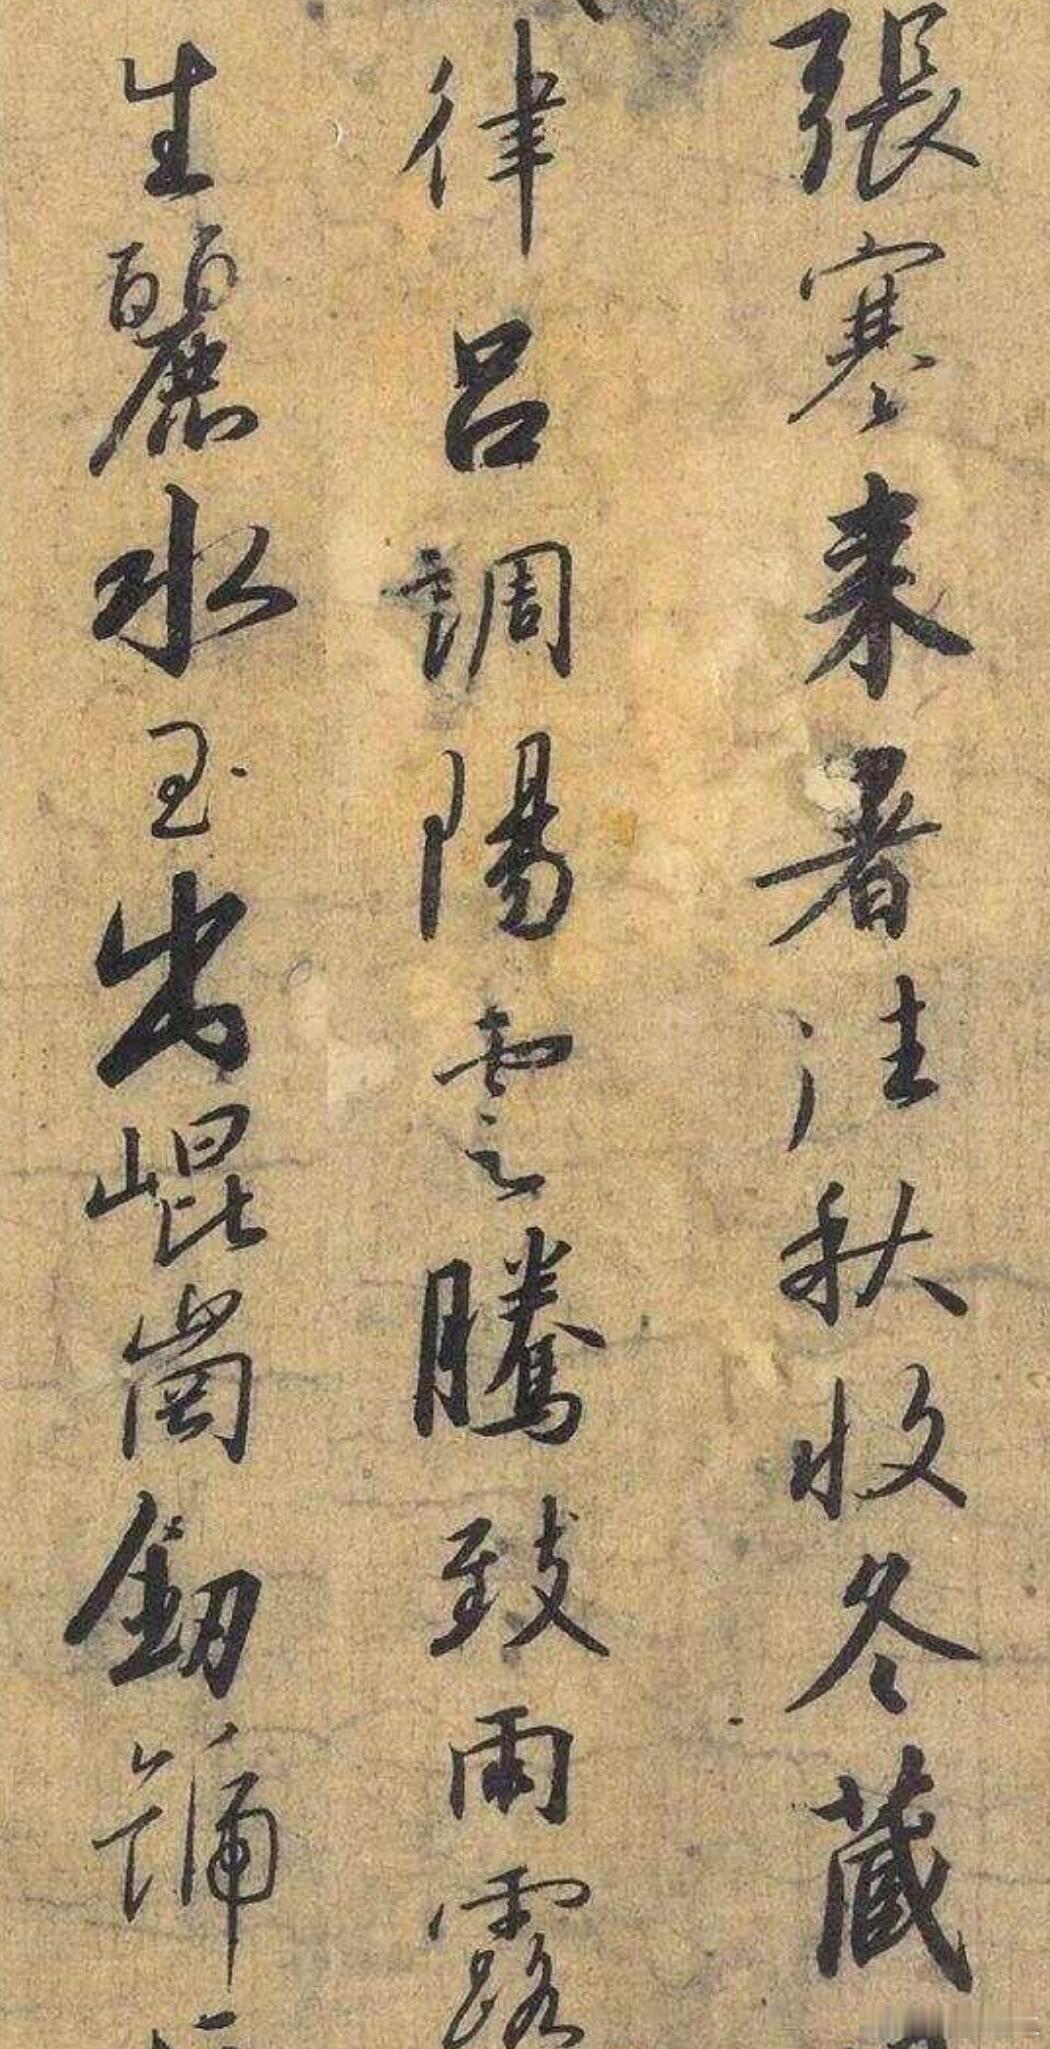 張寒来暑往秋收冬藏
律呂調陽雲騰致雨露
生麗水玉出崐崗劎號